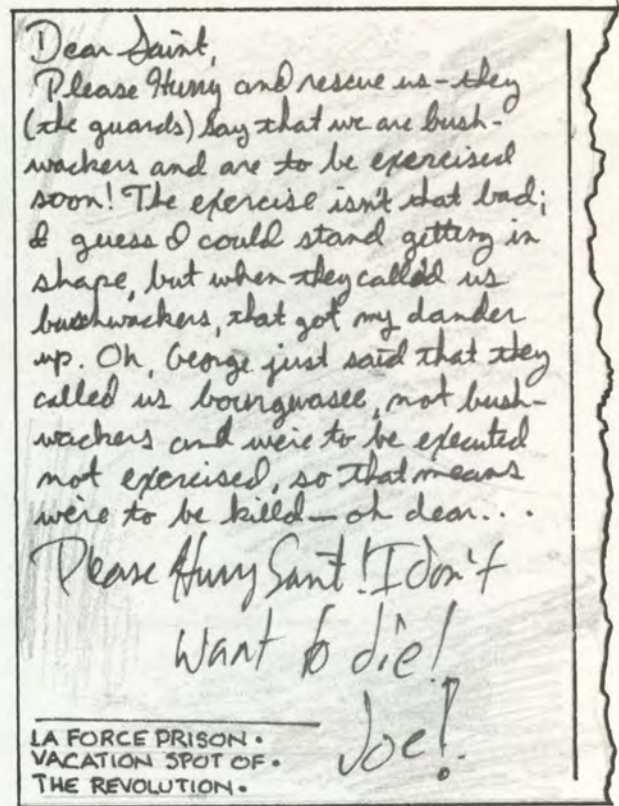 Dear Saint,
Please Hurry and rescue us - they
(the guards) say that we are bush-
wackers and are to be exercised
soon! The exercise isn't that bad;
I guess I could stand getting in
shape, but when they called us
bushwackers, that got my dander
up. Oh, George just said that they
called us bourgwasee, not bush-
wachers and we're to be executed
not exercised, so that means
we're to be killd — oh dear...
Please Hurry Saint! I don't
want to die!
Joe!
LA FORCE PRISON •
VACATION SPOT OF •
THE REVOLUTION •